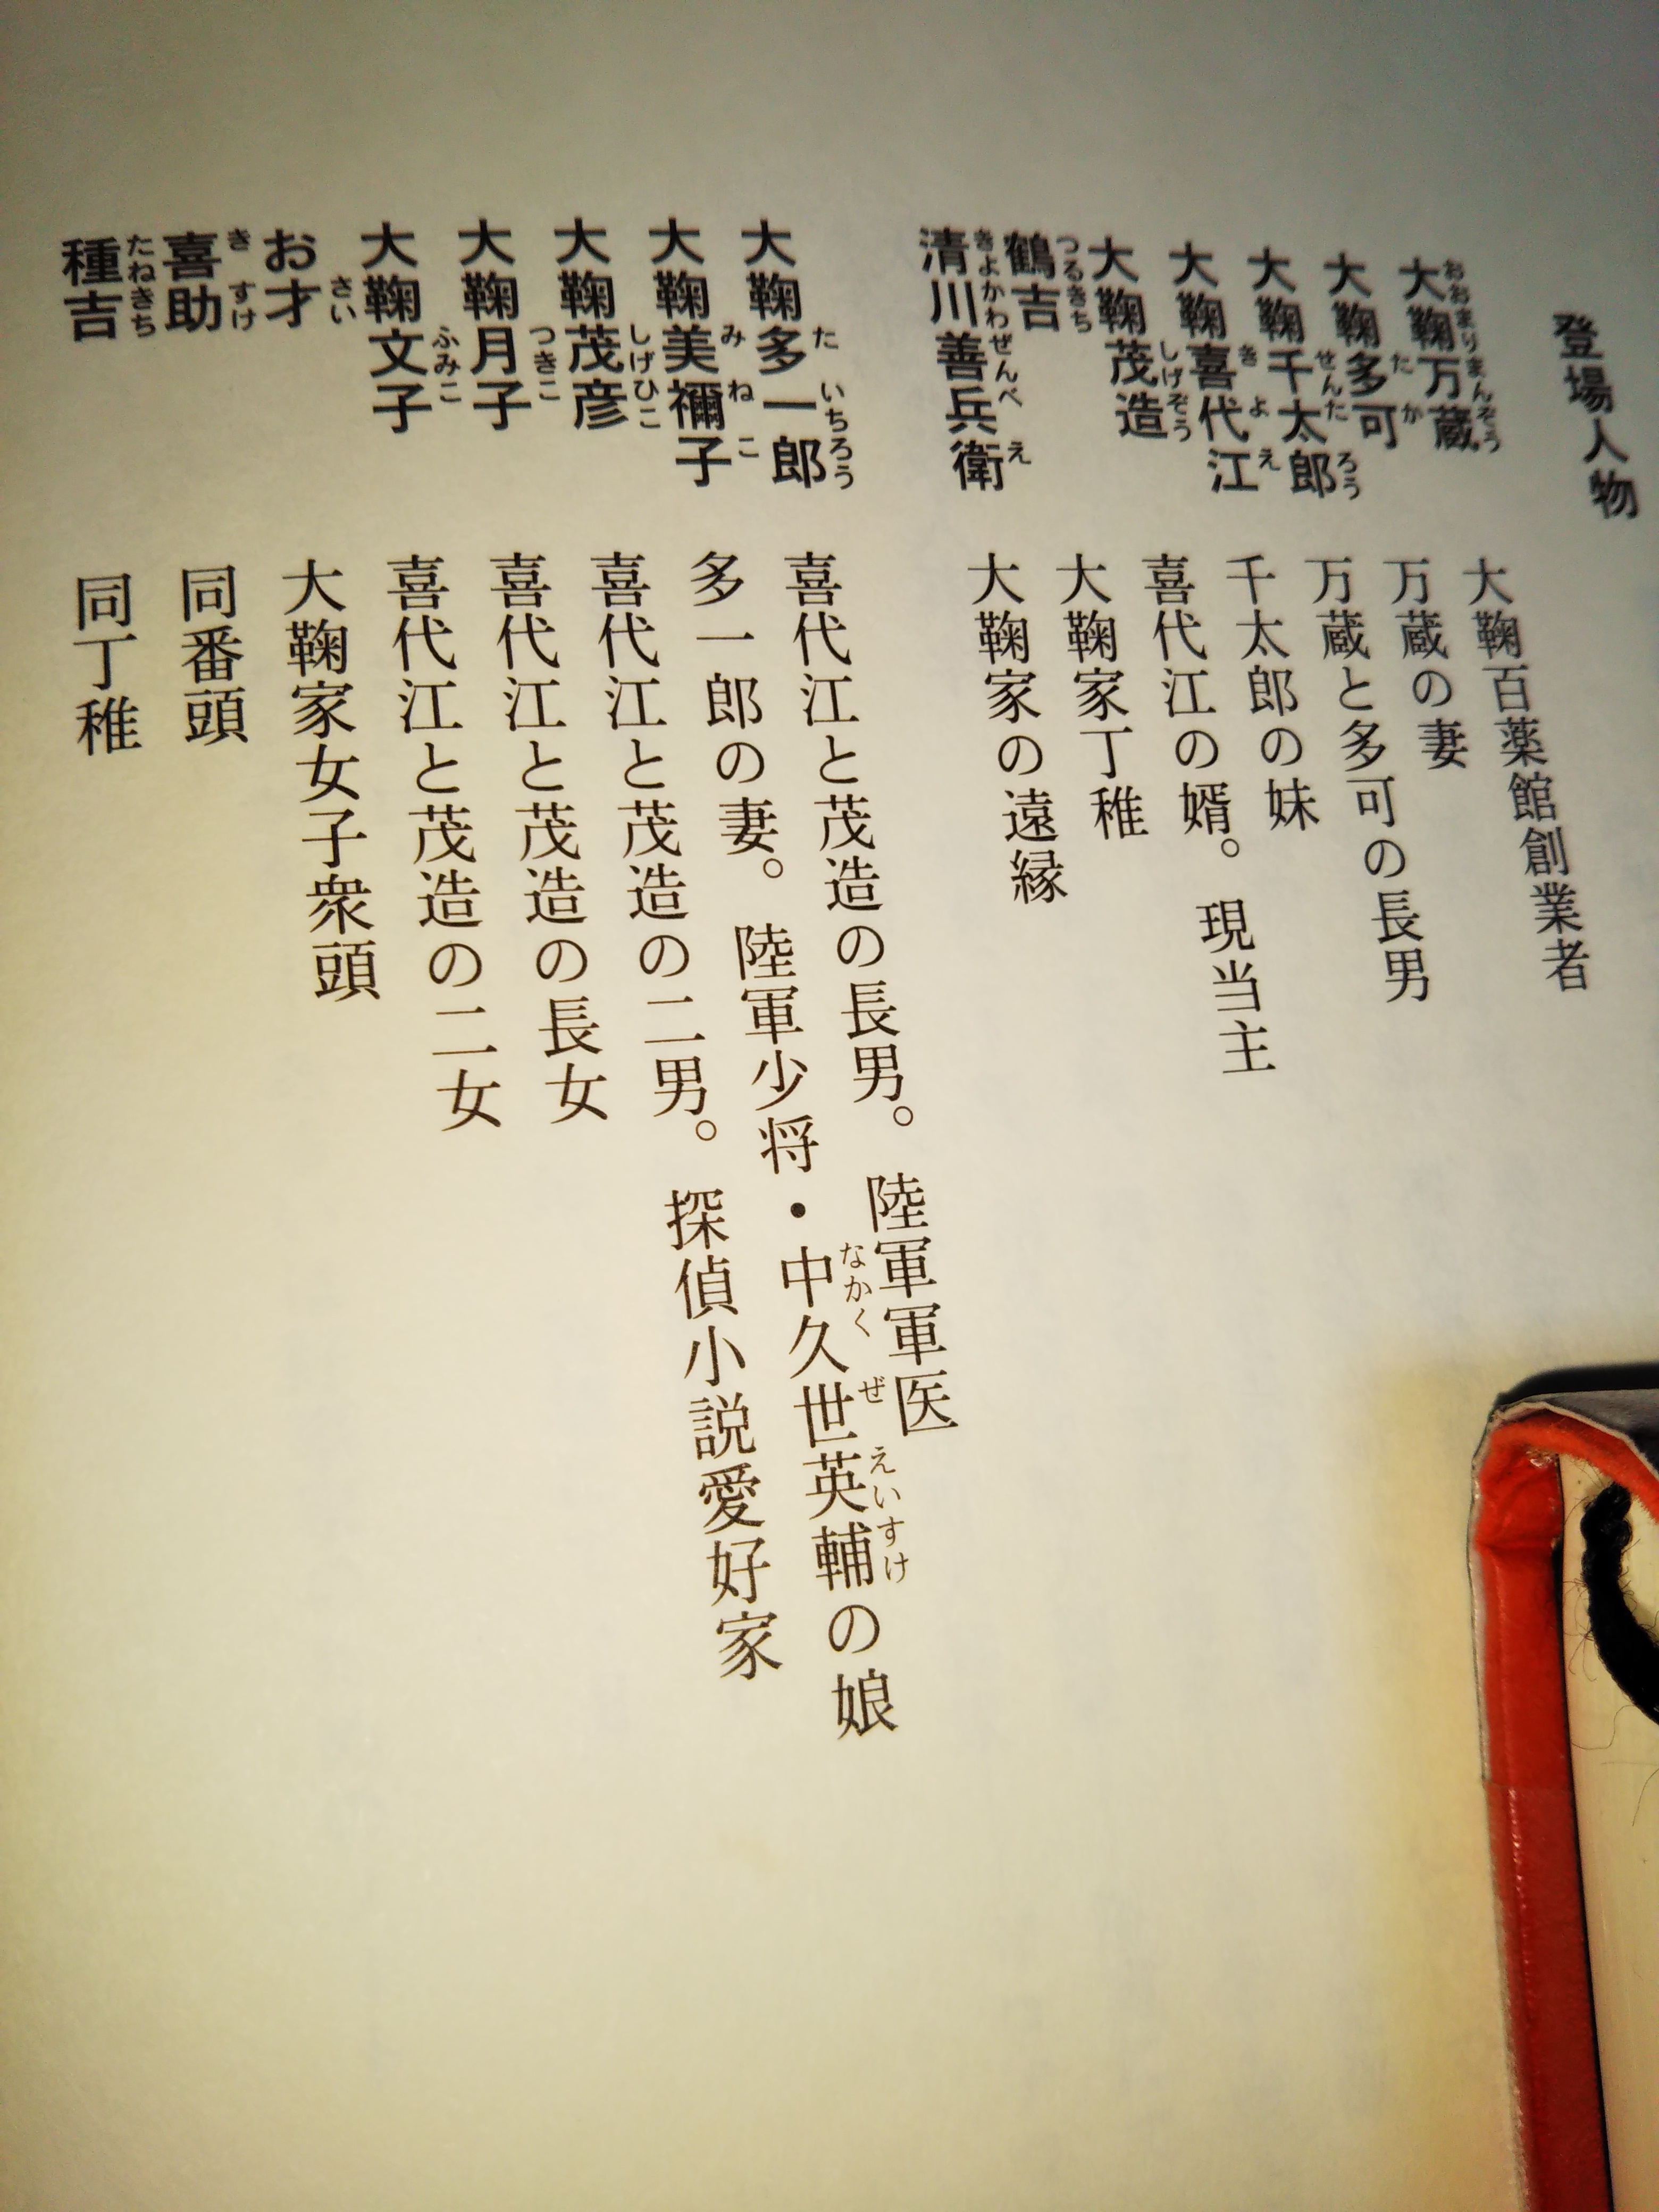 登場人物
大鞠万蔵 大鞠百薬館創業者
大鞠多可 万蔵の妻
大鞠千太郎 万蔵と多可の長男
大鞠喜代江 千太郎の妹
大鞠茂造 喜代江の婿。現当主
鶴吉 大鞠家丁稚
清川善兵衛 大鞠家の遠縁
大鞠多一郎 喜代江と茂造の長男。陸軍軍医
大鞠美禰子 多一郎の妻。陸軍少将・中久世英輔の娘
大鞠茂彦 喜代江と茂造の二男。探偵小説愛好家
大鞠月子 喜代江と茂造の長女
大鞠文子 喜代江と茂造の二女
お才 大鞠家女子衆頭
喜助 同番頭
種吉 同丁稚